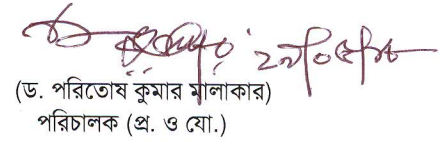 (ড. পরিতোষ কুমার মালাকার)
পরিচালক (প্র. ও যো.)